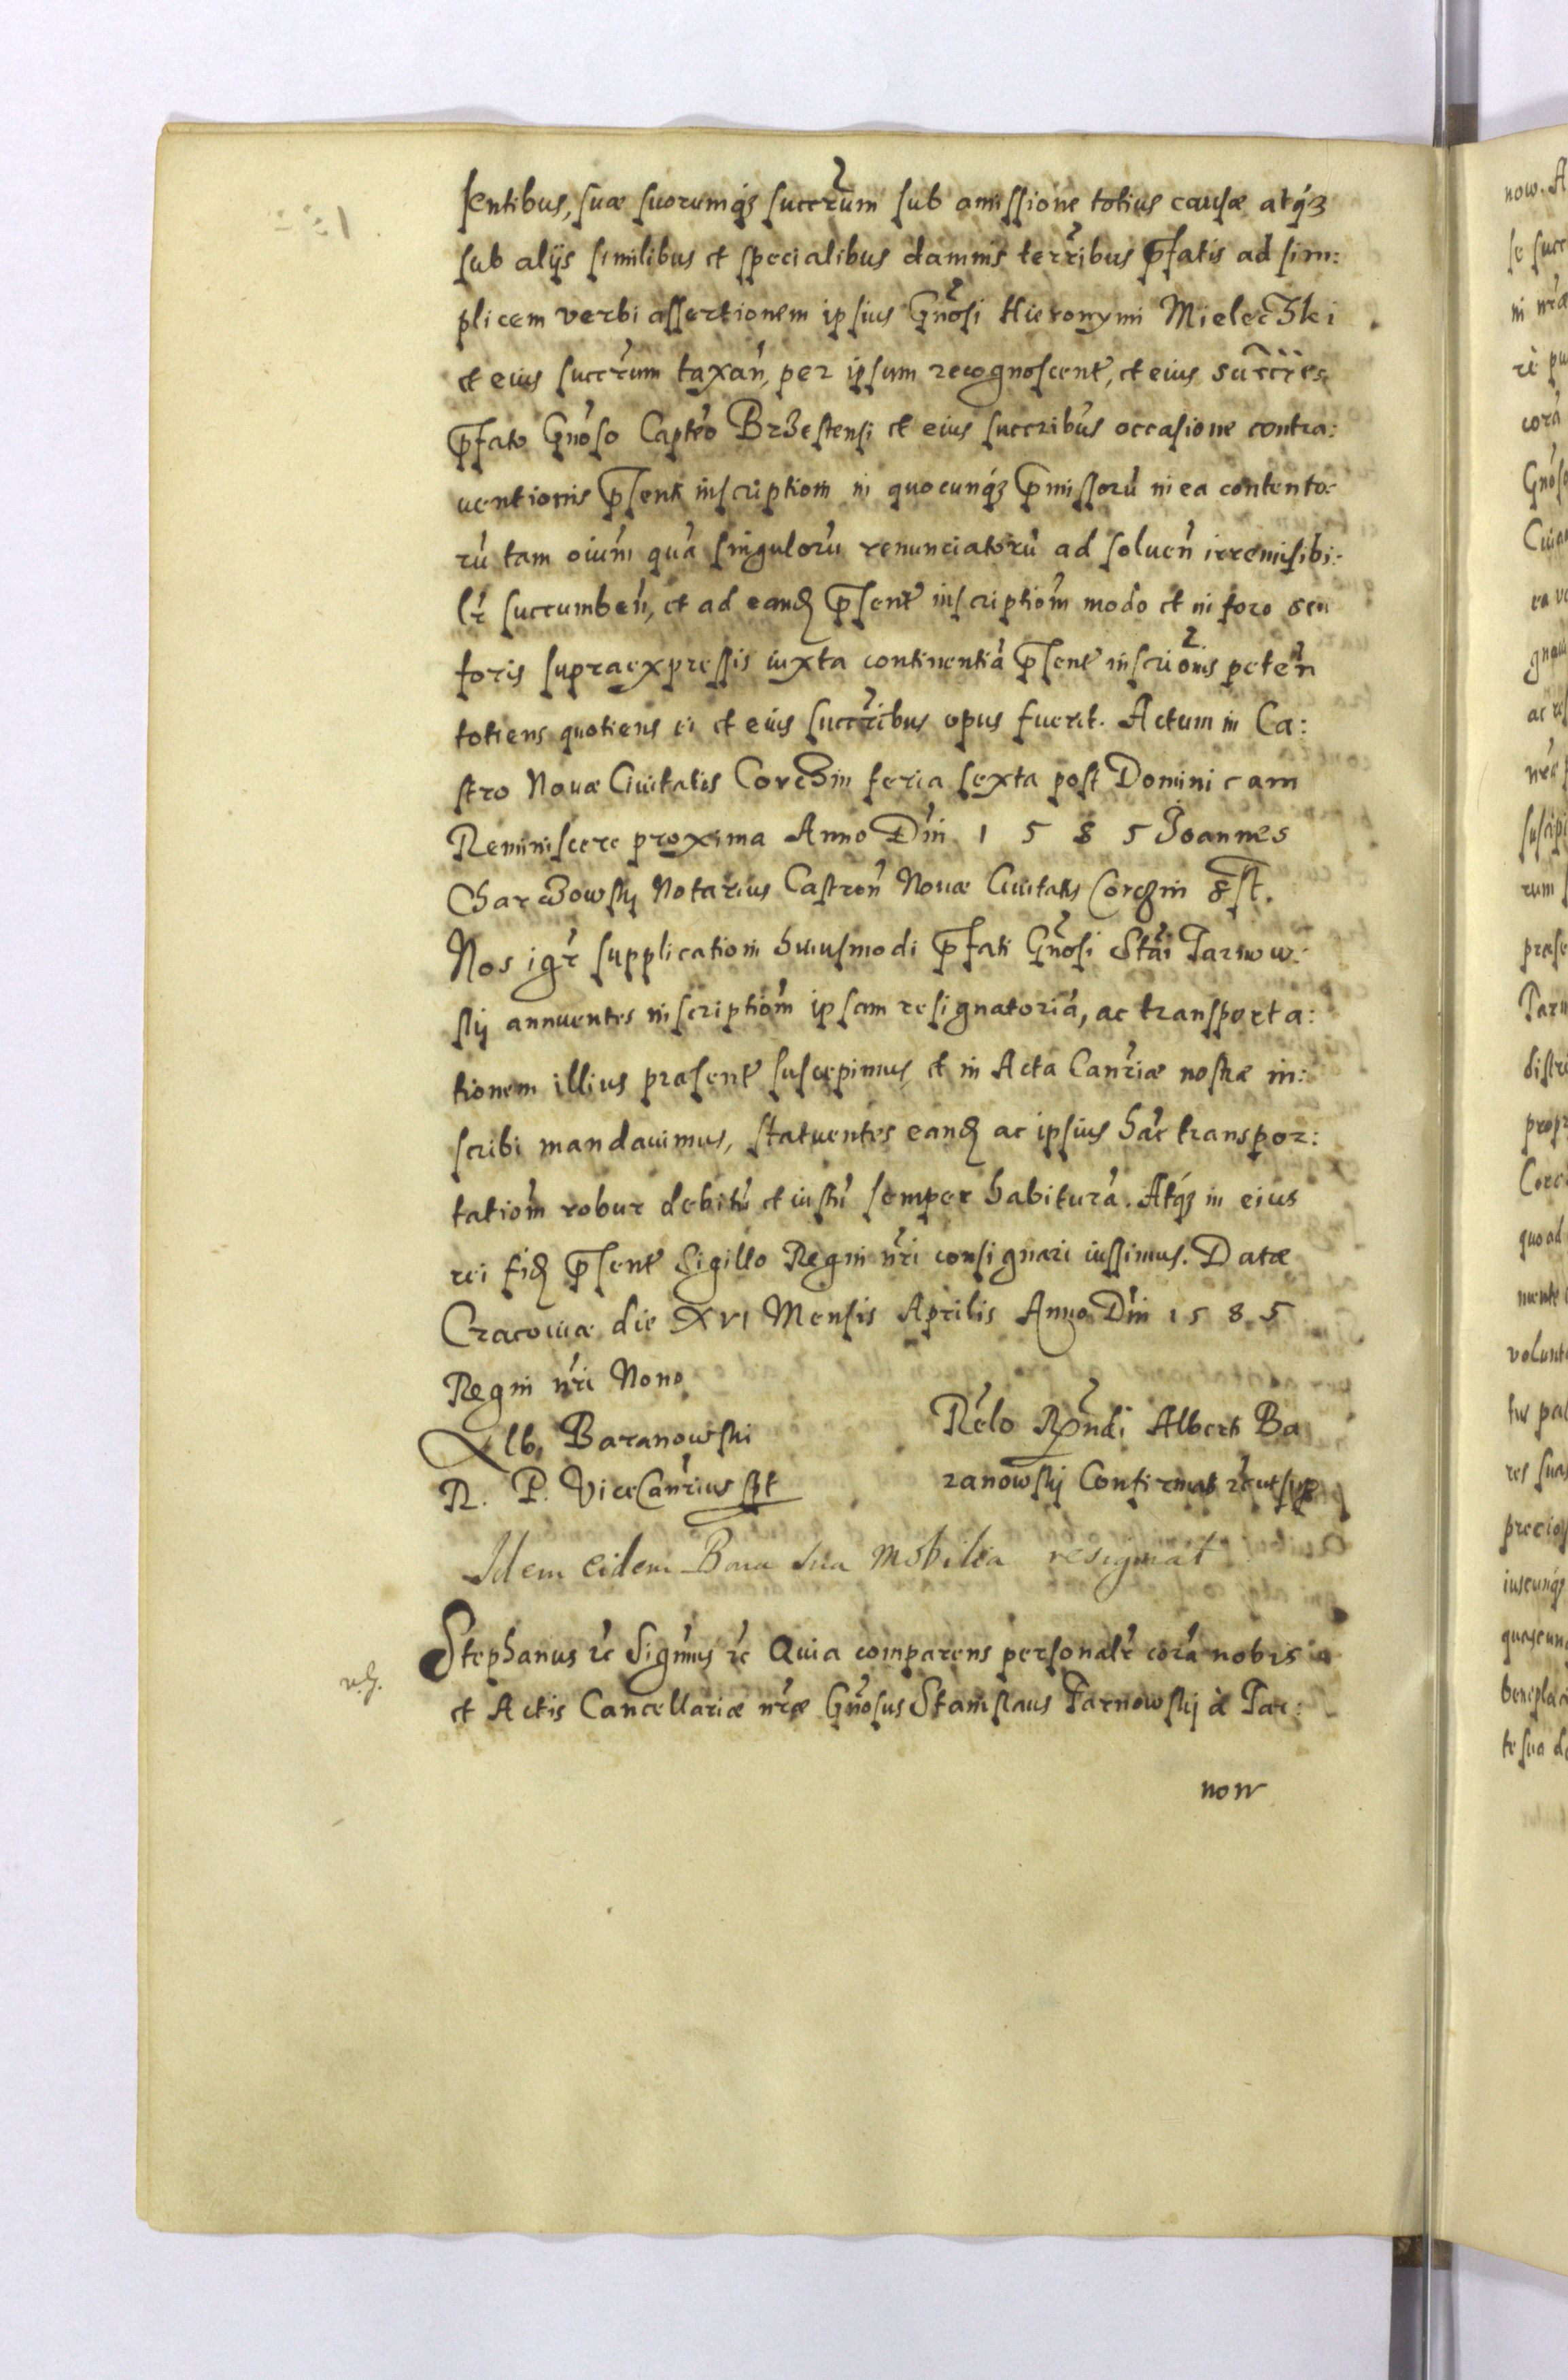 sentibus, suæ suorumq́ꝫ succr̃um sub amissione totius causæ atq́ꝫ
sub alijs similibus et specialibus damnis terr̃ibus p̃fatis ad sim:
plicem verbi assertionem ipsius Gñosi Hieronymi Mielecʒki
et eius succr̃um taxań, per ipsum recognoscent̃, et eius succr̃es
p̃fato Gńoso Capt́eo Brʒestensi et eius succribús occasione contra:
uentionis p̃sent inscriptiom in quocunq́ꝫ p̃missorú in ea contento:
rú tam oiúm quá singulorú renunciatorú ad soluen̂ irremisibi:
lr̃ succumbeń, et ad eanđ p̃sent̃ inscriptióm modo et in foro seu
foris supraexpressis iuxta continentiá p̃sent̃ inscriõnis peteń
totiens quotiens ei et eius succr̃ibus opus fuerit. Actum in Ca:
stro Nouæ Ciuitatis Corcʒin feria sexta post Dominicam
Reminiscere proxima Anno Dńi 1 5 8 5 Joannes
Notarius Castreń Nouæ Ciuitatis Corcʒin
Nos igr̃ supplicatiom huiusmodi p̃fati Gñosi Stái Tarnow:
skij annuentes inscriptióm ipsam resignatoriá, ac transporta:
tionem illius præsent̃ suscepimus, et in Acta Canr̃iæ nostræ in:
scribi mandauimus, statuentes eanđ ac ipsius hác transpor:
tatióm robur debitú et iustú semper habiturá. Atq́ꝫ in eius
rei fiđ p̃sent̃ Sigillo Regni nr̃i consignari iussimus. Datæ
Cracouiæ die XVI Mensis Aprilis Anno Dńi 1585
Regni nr̃i Nono
Alb. Baranowski
R. P. ViceCanr̃ius s̃pt
Rélo Rñdi Alberti Ba
ranowskij
Idem eidem Bona sua mobilia resignat
Stephanus rć Sigńus rć Quia comparens personalr̃ corá nobis
et Actis Cancellariæ nr̃æ Gñosus Stanislaus Tarnowskij à Tar:
now